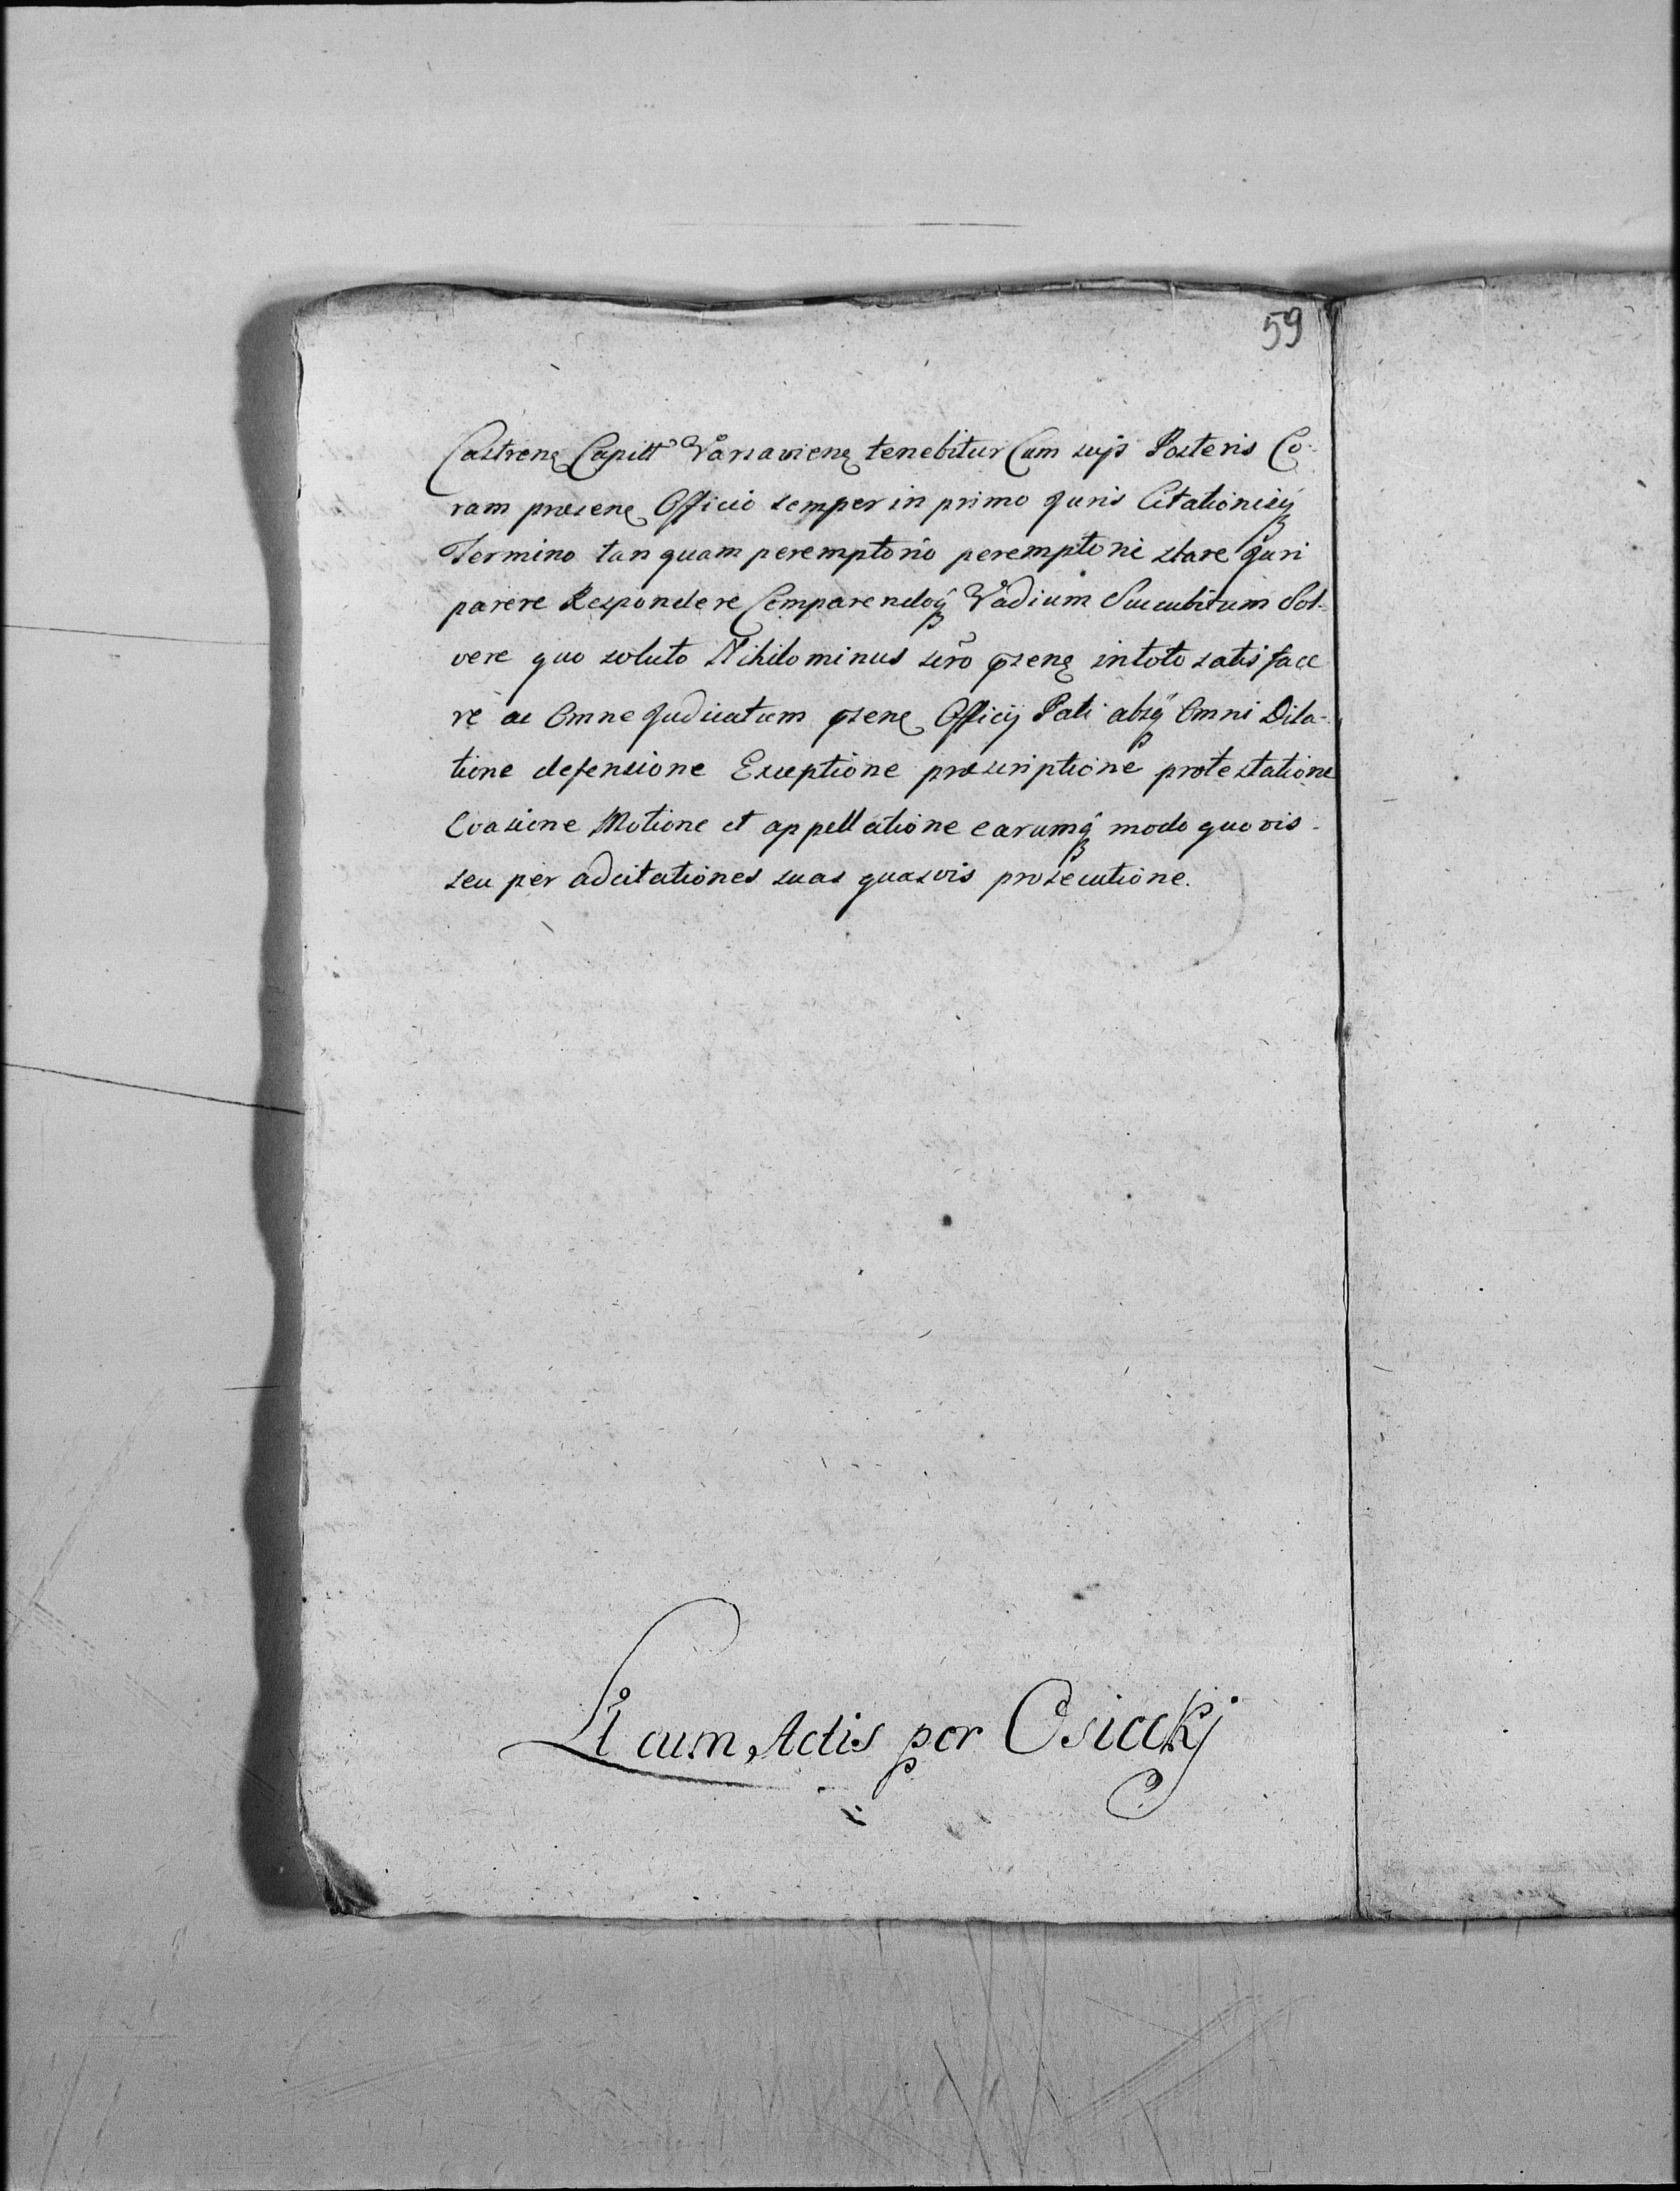 59
Castrenę Capitt Varsavienę tenebitur Cum suis Posteris Co-
ram præsenę Officio semper in primo Juris Citationisq
Termino tanquam peremptorio peremptorie stare Juri
parere Respondere Comparendoq Vadium Succubitum Sol-
vere quo soluto Nihilominus psenę in toto satisface
re ac Omne Judicatum psenę Officij Pati absq Omni Dila-
tione defensione Exceptione præscriptione protestatione
Evasione Motione et appellatione earumq modo quovis
seu per adcitationes suas quasvis prosecutione.
Lt cum Actis per Osieckj